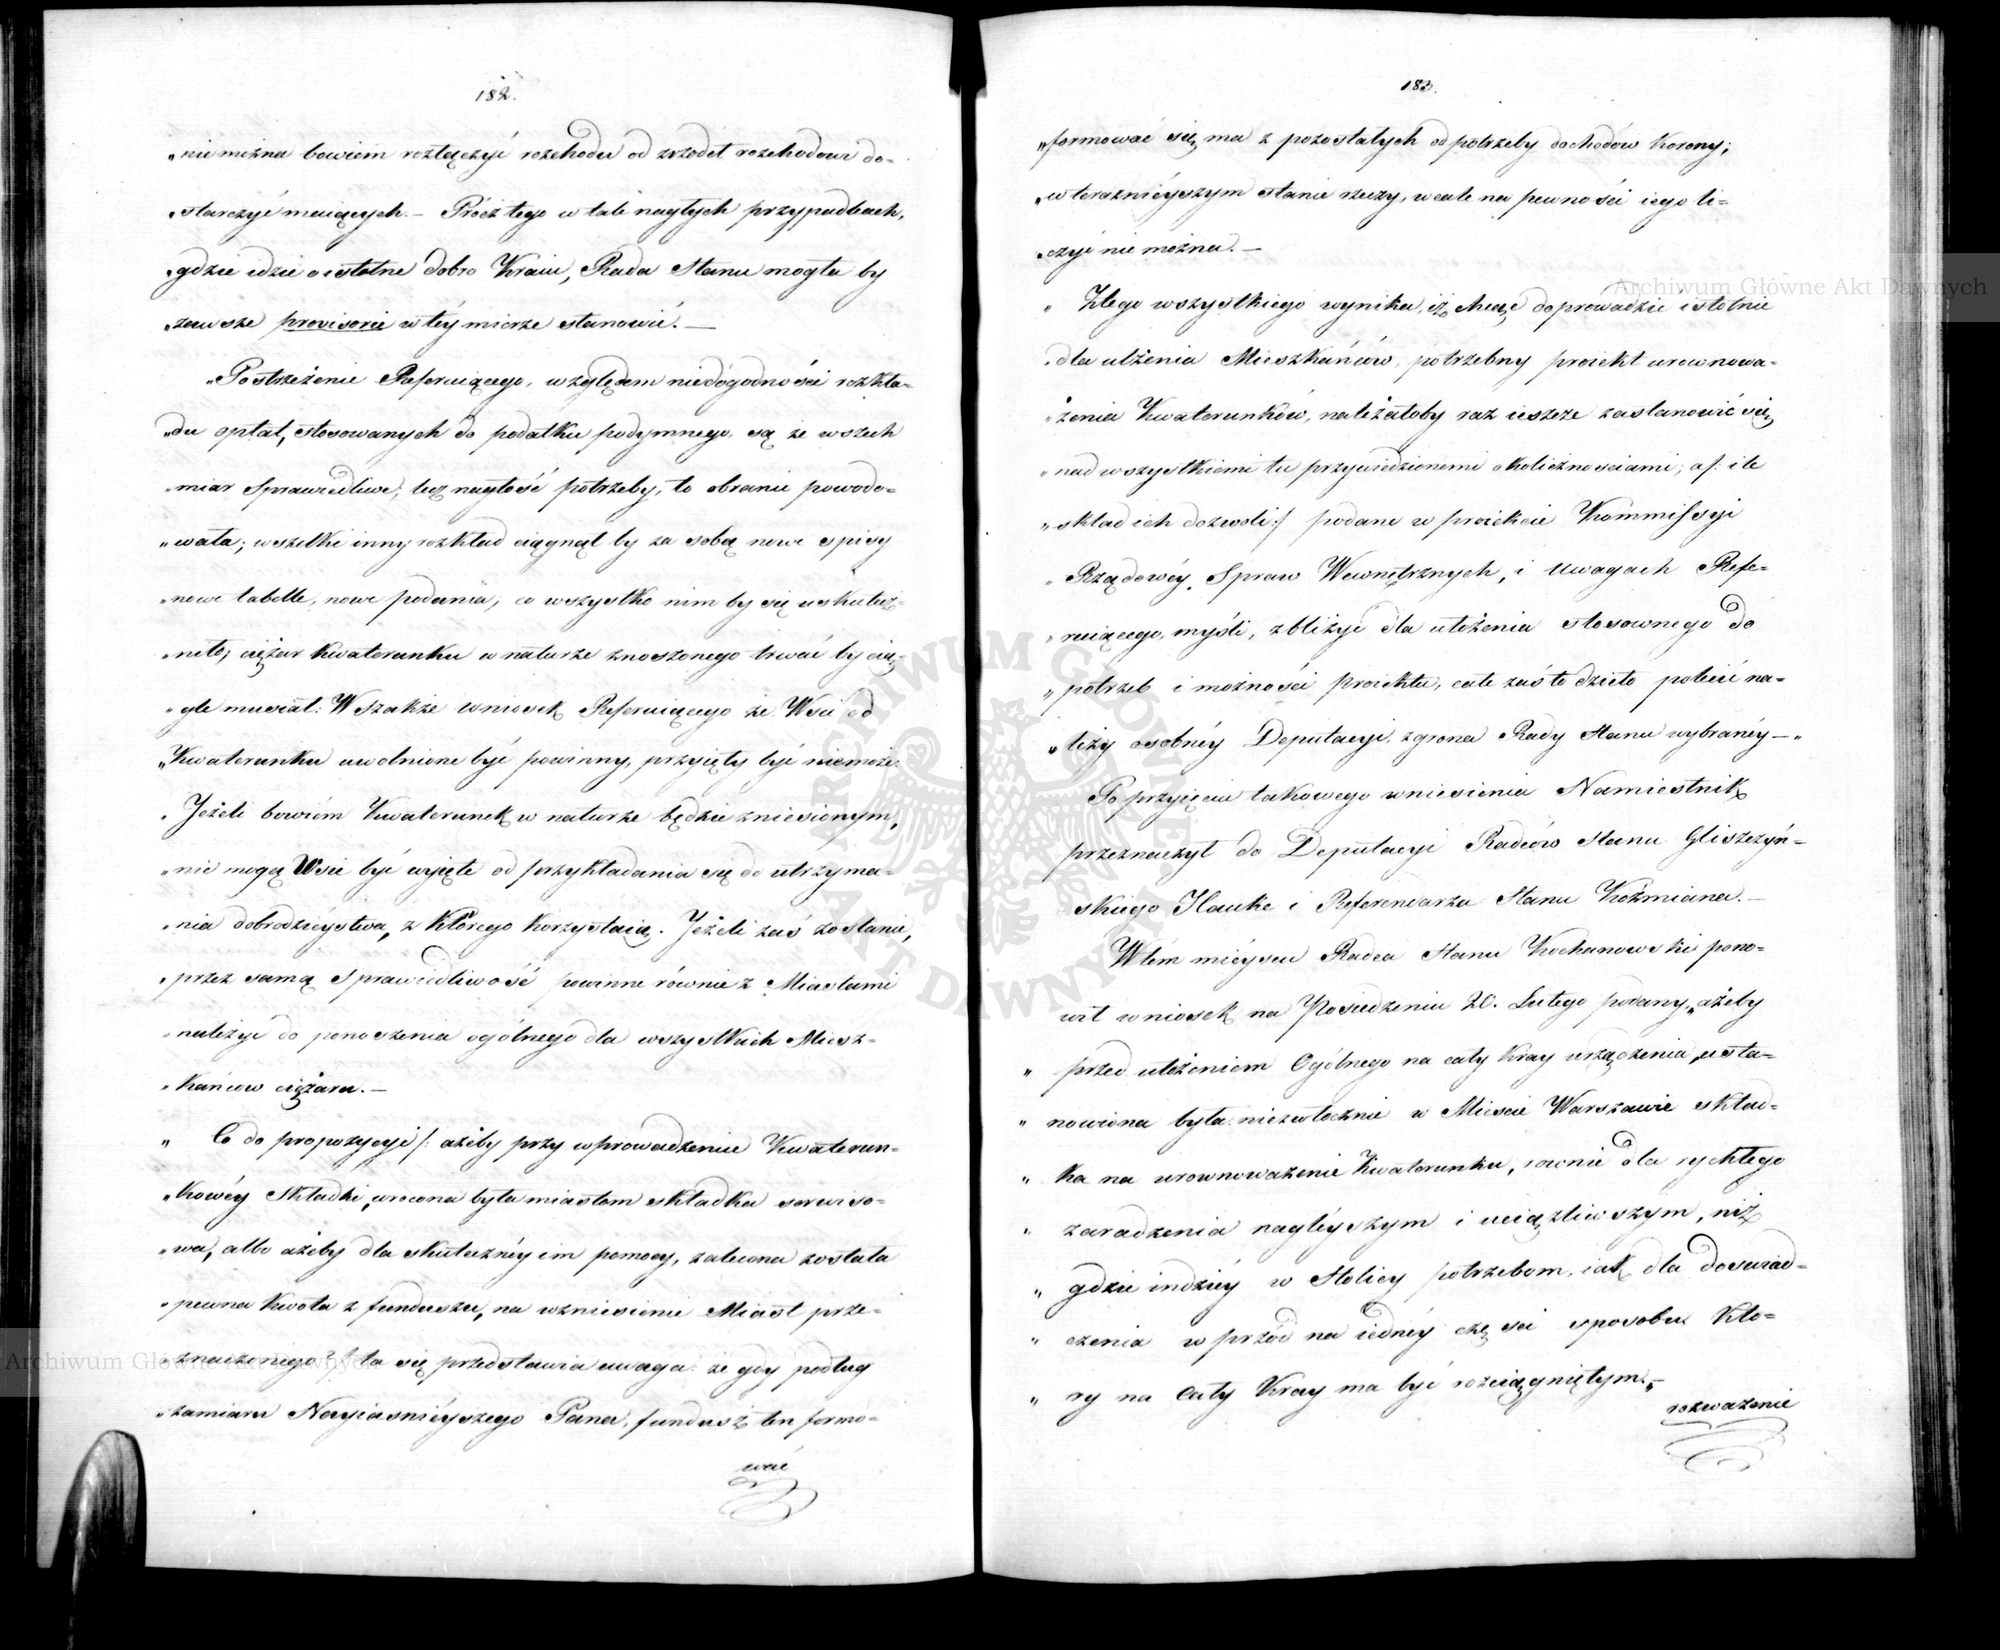 182.
„nie można bowiem rozłączyć rozchodu od zrzodeł rozchodowi do-
„starczyć maiących. – Prócz tego w tak nagłych przypadkach,
„gdzie idzie o istotne dobro Kraiu, Rada Stanu mogła by
„zawsze provisorie w téy mierze stanowić. —
„Postrzeżenie Referuiącego, względem niedogodności rozkła-
„du opłat, stosowanych do podatku podymnego, są ze wszech
„miar sprawiedliwe; lecz nagłość potrzeby, to obranie powodo-
„wała; wszelki inny rozkład ciągnął by za sobą nowe spisy
„nowe tabelle, nowe podania, co wszystko nim by się uskutecz-
„niło, ciężar kwaterunku w naturze znoszonego trwać by cią-
„gle musiał: Wszakże wniosek Referuiącego że Wsi od
„Kwaterunku uwolnione być powinny, przyięty być niemoże.
„Jeżeli bowiém Kwaterunek w naturze będzie zniesionym,
„nie mogą Wsie być wyięte od przykładania się do utrzyma-
„nia dobrodzieystwa, z którego korzystaią. Jeżeli zaś zostanie,
„przez samą sprawiedliwość powinne równie z Miastami
„należyć do ponoszenia ogólnego dla wszystkich Miesz-
„kańcow ciężaru. —
„ Co do propozycyi /: ażeby przy wprowadzeniu Kwaterun-
„kowéy Składki, wrócona była miastom składka serwiso-
„wa, albo ażeby dla skuteznéy im pomocy, zalecona została
„pewna kwota z funduszu, na wzniesienie Miast prze-
„znaczonego?:/ ta się przedstawia uwaga: że gdy podług
„zamiaru Nayiaśniéyszego Pana, fundusz ten formo-
wać
183.
„formować się ma z pozostałych od potrzeby dochodów Korony;
„w teraznieyszym stanie rzeczy, wcale na pewności iego li-
„czyć nie można. —
„ Z tego wszystkiego wynika, iż chcąc doprowadzić istotnie
„dla ulżenia Mieszkańców, potrzebny proiekt urownowa-
„żenia Kwaterunków, należałoby raz ieszcze zastanowić się
„nad wszystkiemi tu przywiedzionemi okolicznościami; a /: ile
„skład ich dozwoli :/ podane w proiekcie Kommissyi
„Rządowéy Spraw Wewnętrznych, i uwagach Refe-
„ruiącego, myśli, zbliżyć dla ułożenia stosownego do
„potrzeb i możności proiektu, całe zaś to dzieło polecić na-
„leży osobnéy Deputacyi, z grona Rady Stanu wybranéy — „
Po przyięciu takowego wniesienia Namiestnik
przeznaczył do Deputacyi Radców Stanu Gliszczyń-
skiego Hauke i Referendarza Stanu Koźmiana. —
W tém mieyscu Radca Stanu Kochanowski pono-
wił wniosek na Posiedzeniu 20. Lutego podany, „ażeby
„ przed ułożeniem Ogólnego na cały Kray urządzenia, usta-
„ nowiona była niezwłocznie w Mieście Warszawie skład-
„ ka na urownoważenie Kwaterunku, rownie dla rychłego
„ zaradzenia nagléyszym i uciążliwszym, niż
„ gdzie indziéy w Stolicy potrzebom, iak dla doswiad-
„ czenia w przód na iednéy części sposobu Któ-
„ ry na cały Kray ma być rozciągniętym. „—
rozważenie
Archiwum Główne Akt Dawnych
Archiwum Główne Akt Dawnych
ARCHIWUM GŁÓWNE AKT DAWNYCH